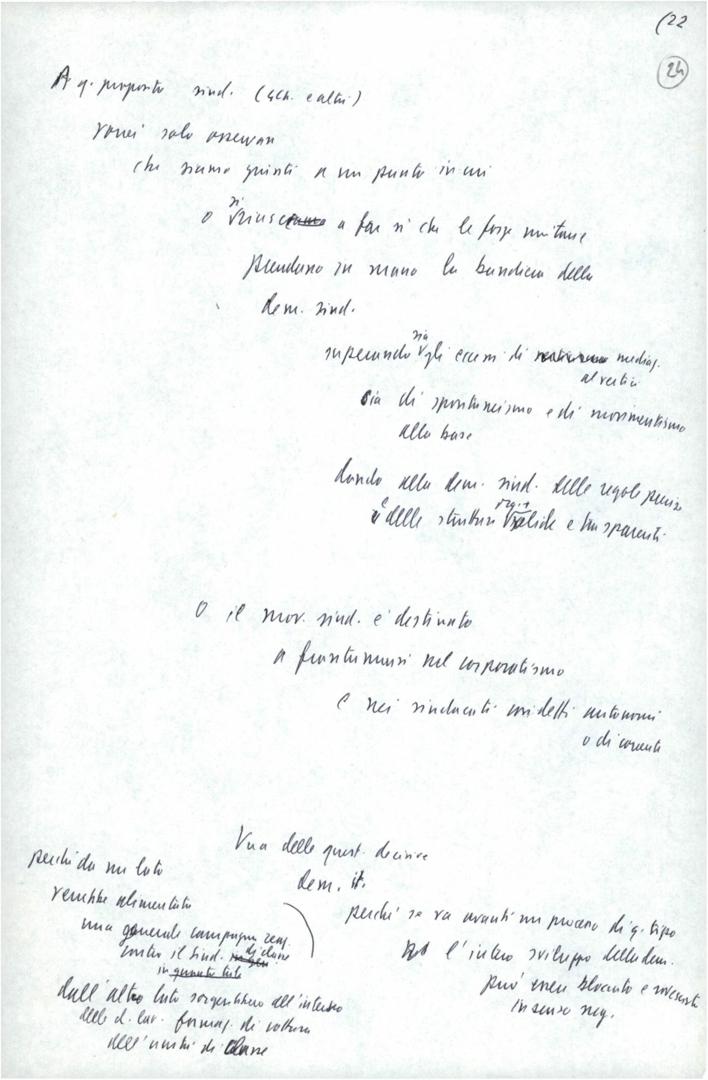 (22
24
A q. proposito sind. (sch. e altri)
vorrei solo osservare
che siamo giunti a un punto in cui
si
o riusciamo a far sì che le forze unitarie
prendano in mano la bandiera della
dem. sind.
sia
superando gli eccessi di mediaz.
al vertice
sia di spontaneismo e di movimentismo
alla base
dando alla dem. sind. delle regole precise
e delle strutture valide e trasparenti
O il mov. sind. è destinato
a frantumarsi nel corporativismo
e nei sindacati cosidetti autonomi
o di corrente
Una delle quest. decisive
dem. it.
perché da un lato
verrebbe alimentata
una generale campagna reaz.
contro il sind. di classe
in quanto tale
dall'altro lato sorgerebbero all'interno
della cl. lav. formaz. di rottura
dell'unità di classe
perché se va avanti un processo di q. tipo
l'intero sviluppo della dem.
può essere bloccato e rovesciato
in senso neg.